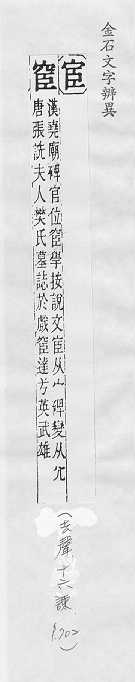 金石文字辨異
宧
窤
漢堯廟碑官位窤學按說文宦从宀碑變从穴
唐張詵夫人樊氏墓誌於戲窤達方英武雄
(去聲.十六諫
P.702)